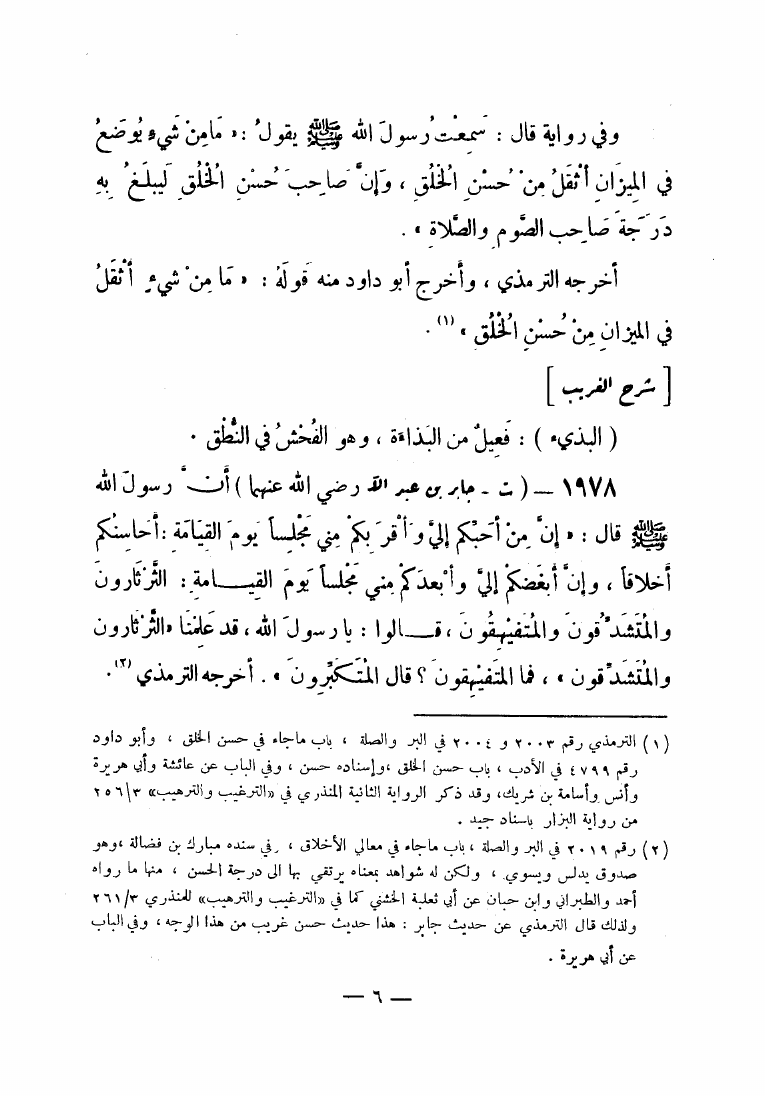 وفي رواية قال : سَمِعْتُ رسولَ الله ﷺ يقولُ : « مَا مِنْ شَيءٍ يُوضَعُ
في المِيزَانِ أثْقَلُ مِنْ حُسْنِ الْخُلُقِ ، وَإنَّ صَاحِبَ حُسْنِ الْخُلُقِ لَيبلَغُ بِهِ
دَرَجَةَ صَاحِبِ الصَّوْمِ والصَّلاةِ » .
أخرجه الترمذي ، وأخرج أبو داود منه قَولَهُ : « مَا مِنْ شيءٍ أثْقَلُ
في الميزانِ مِنْ حُسْنِ الْخُلُقِ » (١) .
[ شرح الغريب ]
( البذيء ) : فَعِيلٌ من البَذاءَة ، وهو الفُحْشُ في النُّطْقِ .
١٩٧٨ – ( ت - جابر بن عبد الله رضي الله عنهما ) أنَّ رسولَ الله
ﷺ قال : « إنَّ مِنْ أحَبِّكم إليَّ وَأقْرَبِكمْ مِني مَجْلِساً يَومَ القِيَامَةِ : أحَاسِنُكم
أخلاقاً ، وإنَّ أبغَضَكمْ إليَّ وأبْعدَكمْ مِني مَجْلساً يَومَ القيـامةِ : الثَّرْثارونَ
والمُتَشَدِّقُونَ والمُتَفَيْهِقُونَ ، قـالوا : يا رسولَ الله ، قد عَلِمْنَا «الثَّرْثارون
والمُتَشَدِّقون » ، فما المتَفَيْهِقونَ ؟ قال المُتَكَبِّرونَ » . أخرجه الترمذي (٢) .
(١) الترمذي رقم ٢٠٠٣ و ٢٠٠٤ في البر والصلة ، باب ماجاء في حسن الخلق ، وأبو داود
رقم ٤٧٩٩ في الأدب ، باب حسن الخلق ،وإسناده حسن ، وفي الباب عن عائشة وأبي هريرة
وأنس وأسامة بن شريك، وقد ذكر الرواية الثانية المنذري في «الترغيب والترهيب» ٢٥٦/٣
من رواية البزار باسناد جيد .
(٢) رقم ٢٠١٩ في البر والصلة ، باب ماجاء في معالي الأخلاق ، وفي سنده مبارك بن فضالة ،وهو
صدوق يدلس ويسوي ، ولكن له شواهد بمعناه يرتقي بها الى درجة الحسن ، منها ما رواه
أحمد والطبراني وابن حبان عن أبي ثعلبة الخشني كما في «الترغيب والترهيب» للمنذري ٢٦١/٣
ولذلك قال الترمذي عن حديث جابر : هذا حديث حسن غريب من هذا الوجه ، وفي الباب
عن أبي هريرة .
— ٦ —